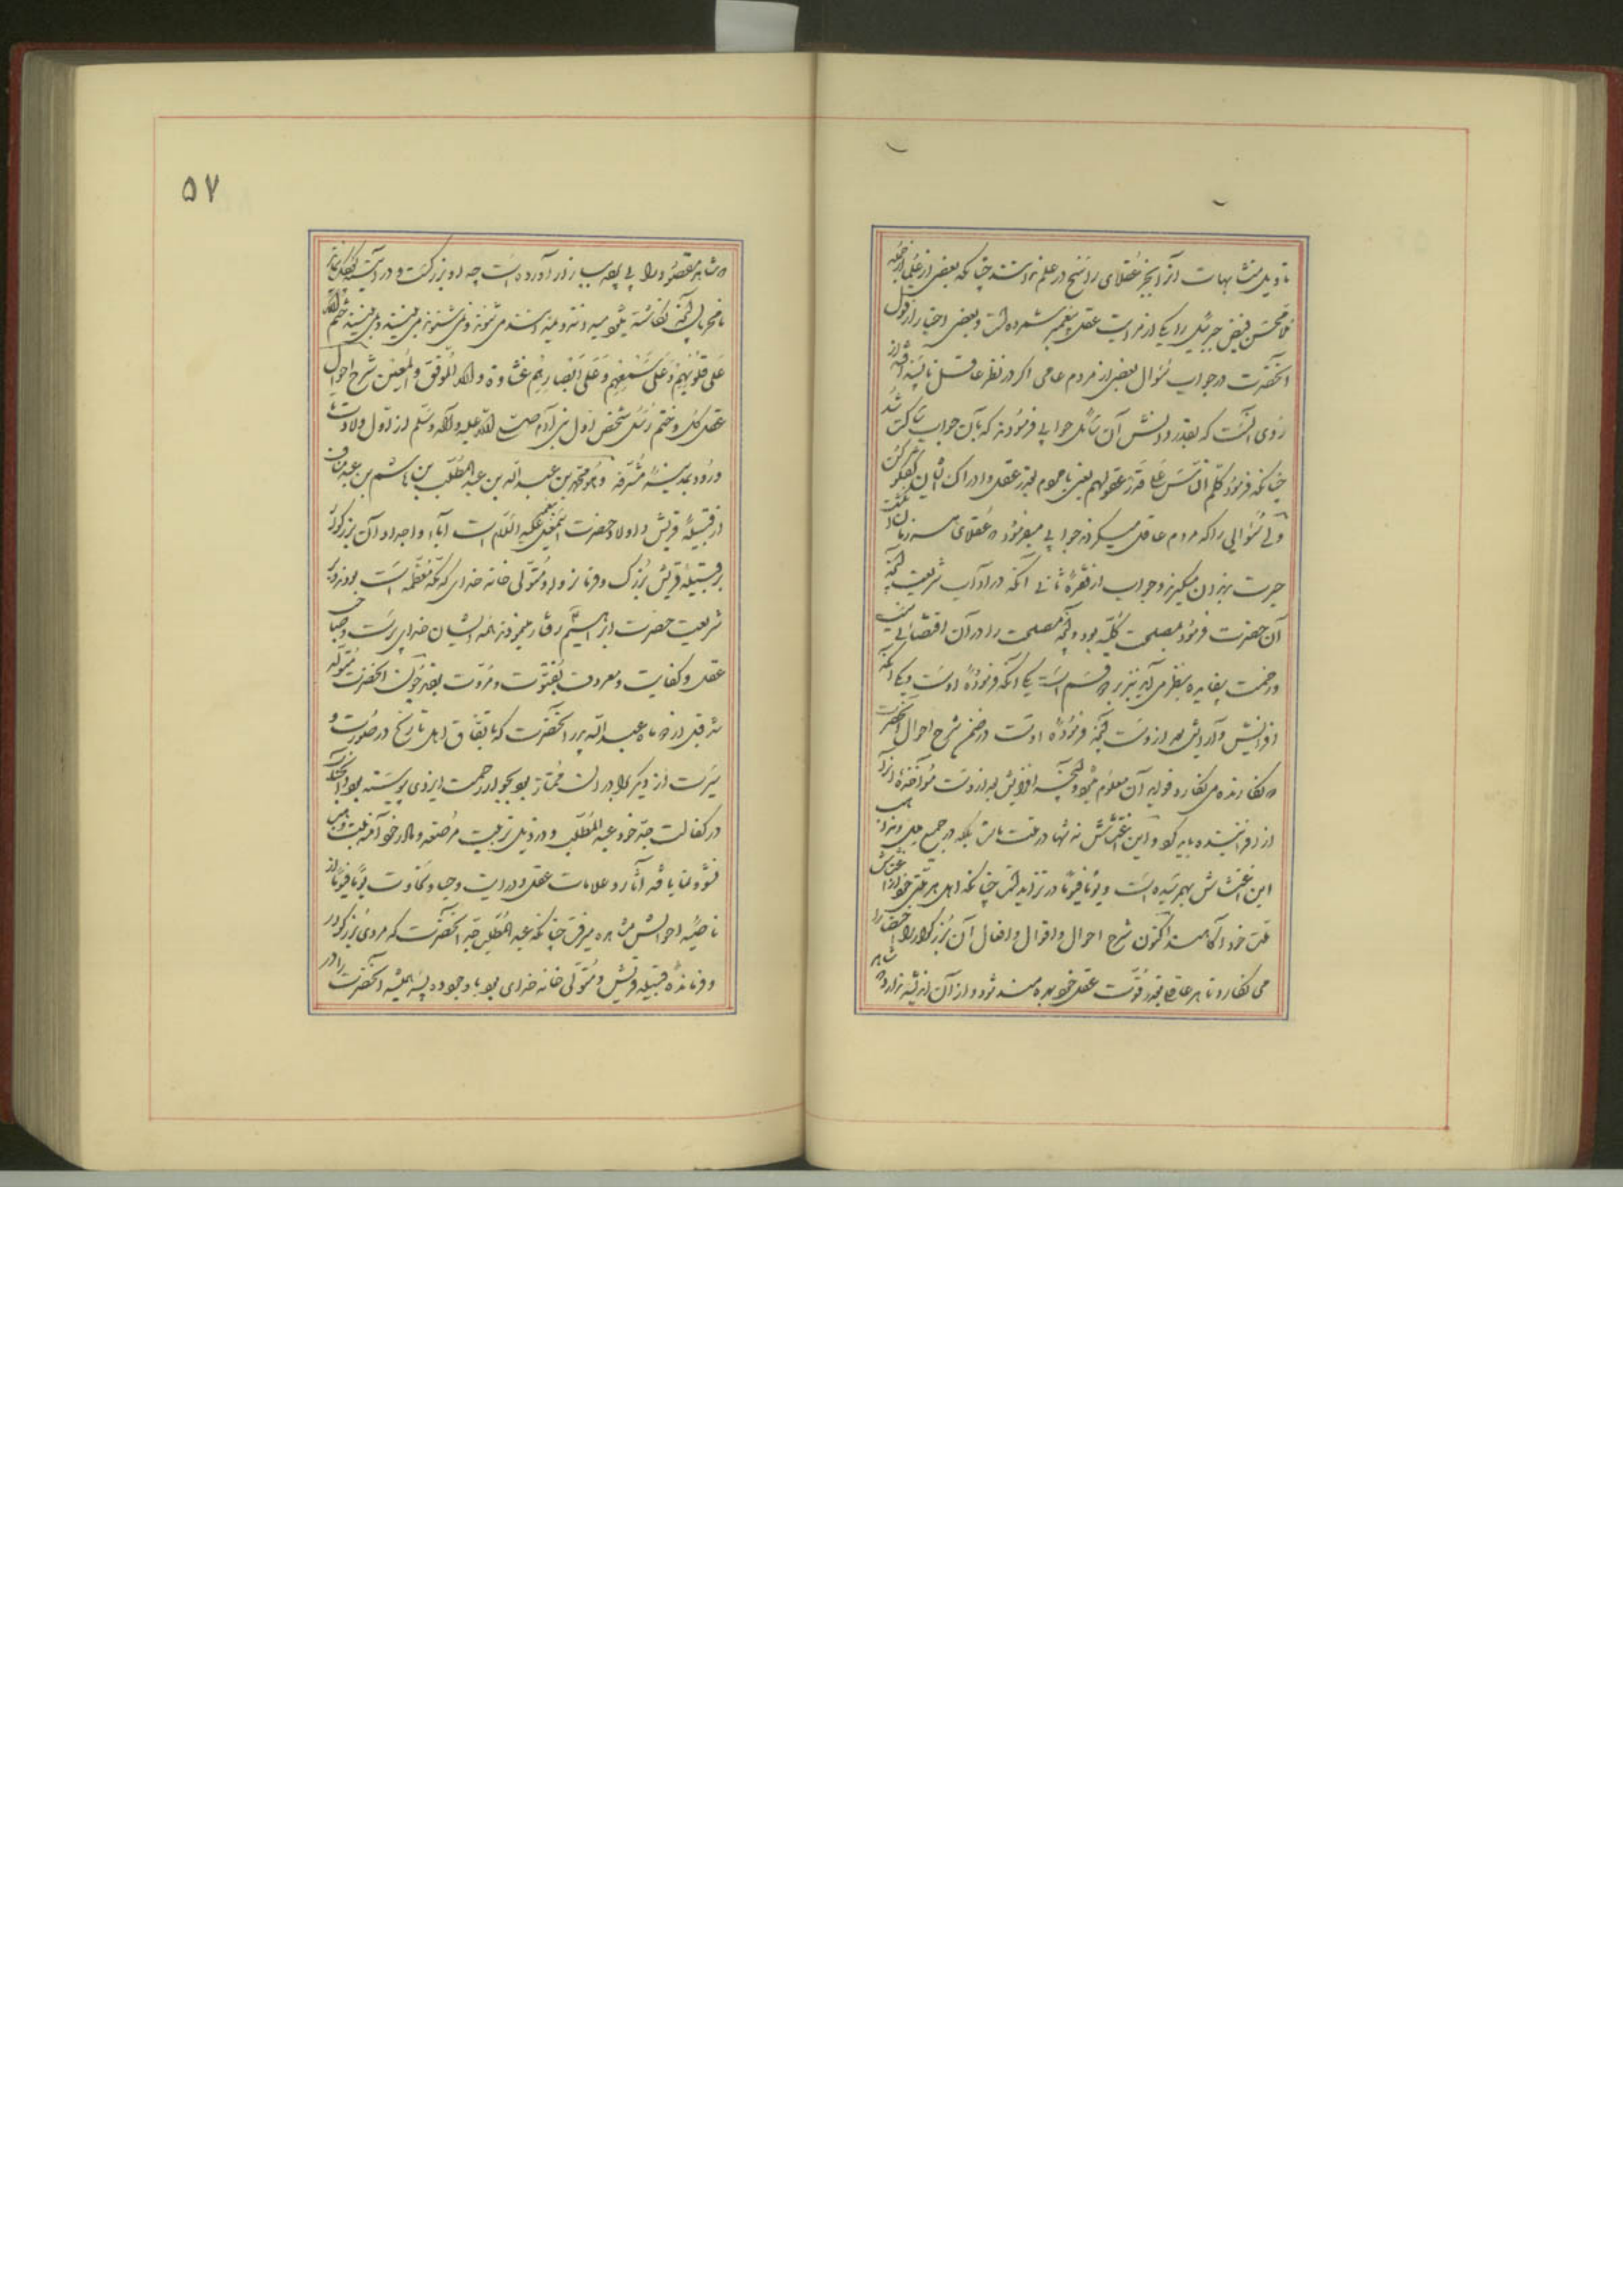 تاویل متشابهات را بجز عقلای راسخ در علم ندانند چنانکه بعضی از علما از جمله
ملا محسن فیض جبرئیل را یکی از مراتب عقل پیغمبر شمرده است و بعضی اخبار از قول
آنحضرت در جواب سؤال بعضی از مردم عامی اگر در نظر عاقل ناپسند افتد از
روی آنست که بقدر دانش آن سائل جوابی فرمودند که بآن جواب ساکت شد
چنانکه فرمود کلم الناس علی قدر عقولهم یعنی با مردم بقدر عقل و ادراک ایشان گفتگو کن
ولی سؤالی را که مردم عاقل میکردند جوابی میفرمود که عقلای هر زمان
حیرت بدندان میگیرند و جواب از فقره ثانی آنکه در آداب شریعت آنچه
آن حضرت فرمود مصلحت کلیه بود و آنچه مصلحت را در آن اقتضائی نیست
و زحمت بیفایده بنظر می آید نیز بر دو قسم است یکی آنکه فرموده اوست و یکی آنکه
افزایش و آرایش امت از وست آنچه فرموده اوست در ضمن شرح احوال آنحضرت
نگارنده می نگارد فواید آن معلوم میشود و آنچه افزایش امت از وست مؤاخذه آنرا
از افزاینده باید کرد و این اغتشاش نه تنها در ملت ماست بلکه در جمیع ملل
این اغتشاش بهم رسیده است و یوما فیوما در تزاید است چنانکه اهل هر ملتی خود از اغتشاش
ملت خود آگاهند اکنون شرح احوال و اقوال و افعال آن بزرگوار را
می نگارد تا هر عاقلی بقدر قوت عقل خود بهره مند شود و از آن اندیشه ندارد که
شاهد مقصود را بی پرده ببازار آورده است چه او بزرگست و در
نامحرمان آنچه
علی قلوبهم و علی سمعهم و علی ابصارهم غشاوة والله الموفق والمعین شرح احوال
عقل کل و ختم رسل شخص اول بنی آدم صلی الله علیه و آله و سلم از اول ولادت تا
ورود بمدینه مشرفه و هو محمد بن عبدالله بن عبدالمطلب بن هاشم بن عبد مناف
از قبیله قریش و اولاد حضرت اسمعیل علیه السلام است آباء و اجداد آن بزرگوار
بر قبیله قریش بزرگ و فرمانروا و متولی خانه خدای که مکه معظمه است بودند و به
شریعت حضرت ابراهیم رفتار میفرمودند همه ایشان خدای پرست و صاحب
عقل و کفایت و معروف بفتوت و مروت بودند چون آنحضرت متولد
شد قبل از دو ماه عبدالله پدر آنحضرت که باتفاق اهل تاریخ در صورت و
سیرت از دیگر برادران ممتاز بود بجوار رحمت ایزدی پیوسته بود آنجناب
در کفالت جد خود عبدالمطلب و در ذیل تربیت مرضعه و مادر خود آمنه بنت وهب
نشو و نما یافته آثار و علامات عقل و درایت و حیا و سخاوت یوما فیوما از
ناصیه احوالش مشاهده میرفت چنانکه عبدالمطلب جد آنحضرت که مردی بزرگ بود
و فرمانده قبیله قریش و متولی خانه خدای بود باوجود ده پسر همیشه آنحضرت را در
۵۷